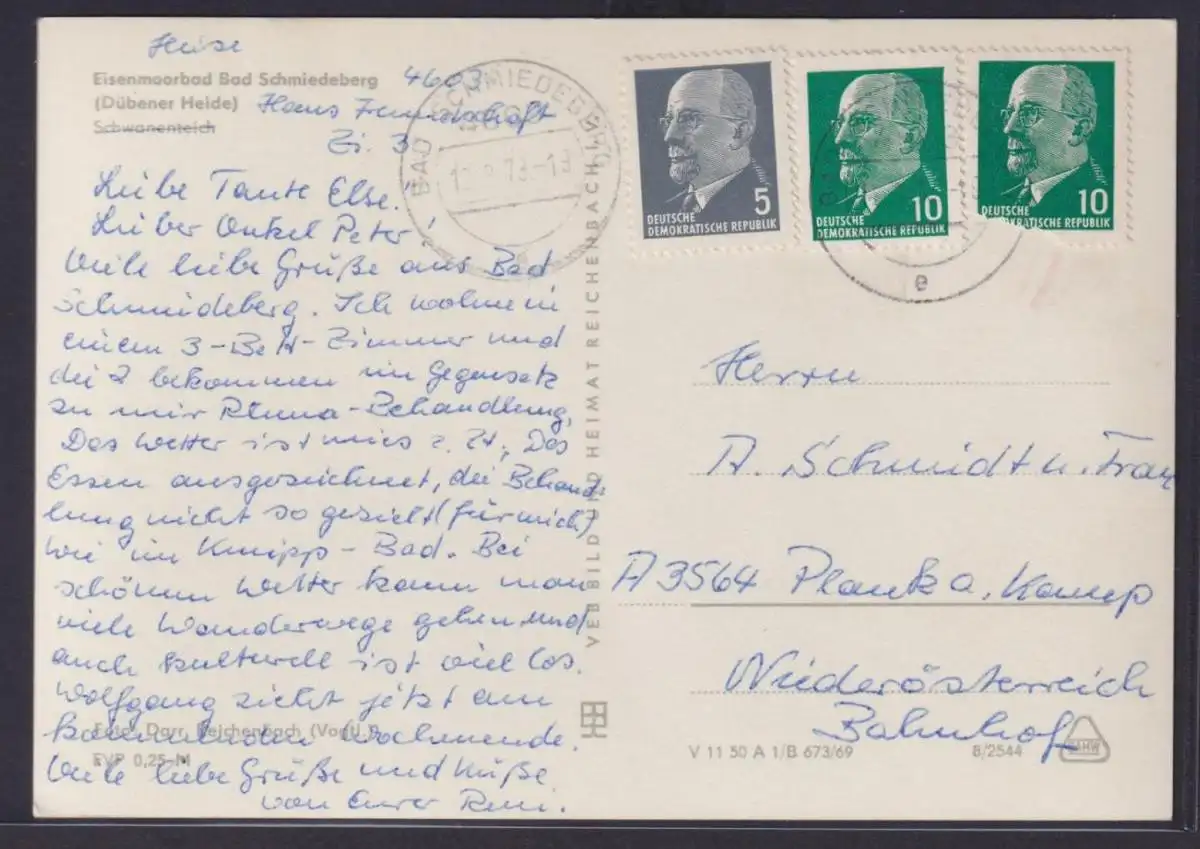 Heise
Eisenmoorbad Bad Schmiedeberg
4603
(Dübener Heide)
Haus Freundschaft
Schwanenteich
Zi. 3
Liebe Tante Else!
Lieber Onkel Peter!
Viele liebe Grüße aus Bad
Schmiedeberg. Ich wohne in
einem 3-Bett-Zimmer und
die 2 bekommen im Gegensatz
zu mir Rheuma-Behandlung.
Das Wetter ist mies z. Zt., Das
Essen ausgezeichnet, die Behand-
lung nicht so gezielt (für mich)
wie im Kneipp-Bad. Bei
schönem Wetter kann man
viele Wanderwege gehen und
auch kulturell ist viel los.
Wolfgang zieht jetzt am
kommenden Wochenende.
Foto: Darr, Reichenbach (Vogtl.)
EVP 0,25 M
Viele liebe Grüße und Küsse
von Eurer
VEB BILD UND HEIMAT REICHENBACH I. V.
BAD SCHMIEDEBERG
5
DEUTSCHE
DEMOKRATISCHE REPUBLIK
10
DEUTSCHE
DEMOKRATISCHE REPUBLIK
10
DEUTSCHE
DEMOKRATISCHE REPUBLIK
e
Herrn
A. Schmidt u. Frau
A 3564 Plank a. Kamp
Niederösterreich
Bahnhof
V 11 50 A 1/B 673/69
8/2544